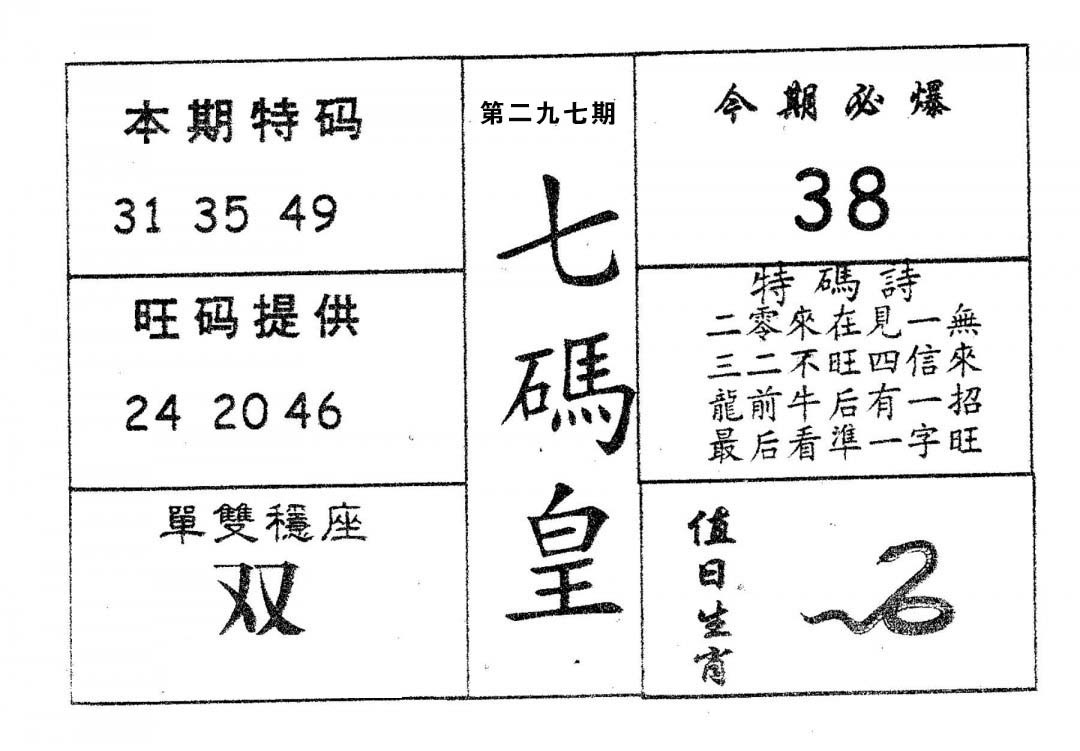 本期特码
31 35 49
旺码提供
24 20 46
單雙穩座
双
第二九七期
七
碼
皇
今期必爆
38
特碼詩
二零來在見一無
三二不旺四信來
龍前牛后有一招
最后看準一字旺
值日生肖